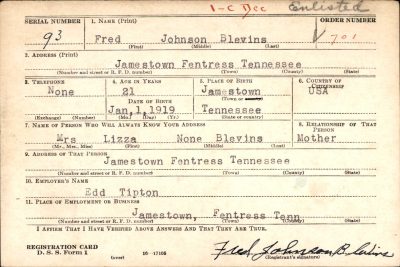 1-C Dec Enlisted
SERIAL NUMBER 1. NAME (Print) ORDER NUMBER
93 Fred Johnson Blevins V701
(First) (Middle) (Last)
3. ADDRESS (Print)
Jamestown Fentress Tennessee
(Number and street or R. F. D. number) (Town) (County) (State)
3. TELEPHONE 4. AGE IN YEARS 5. PLACE OF BIRTH 6. COUNTRY OF CITIZENSHIP
None 21 Jamestown USA
(Town or county)
DATE OF BIRTH
Jan,1,1919 Tennessee
(Exchange) (Number) (Mo.) (Day) (Yr.) (State or country)
7. NAME OF PERSON WHO WILL ALWAYS KNOW YOUR ADDRESS 8. RELATIONSHIP OF THAT PERSON
Mrs Lizza None Blevins Mother
(Mr., Mrs., Miss) (First) (Middle) (Last)
9. ADDRESS OF THAT PERSON
Jamestown Fentress Tennessee
(Number and street or R. F. D. number) (Town) (County) (State)
10. EMPLOYER'S NAME
Edd Tipton
11. PLACE OF EMPLOYMENT OR BUSINESS
Jamestown, Fentress Tenn
(Number and street or R. F. D. number) (Town) (County) (State)
I AFFIRM THAT I HAVE VERIFIED ABOVE ANSWERS AND THAT THEY ARE TRUE.
REGISTRATION CARD
D. S. S. Form 1 (over) 16-17105
Fred Johnson Blevins
(Registrant's signature)